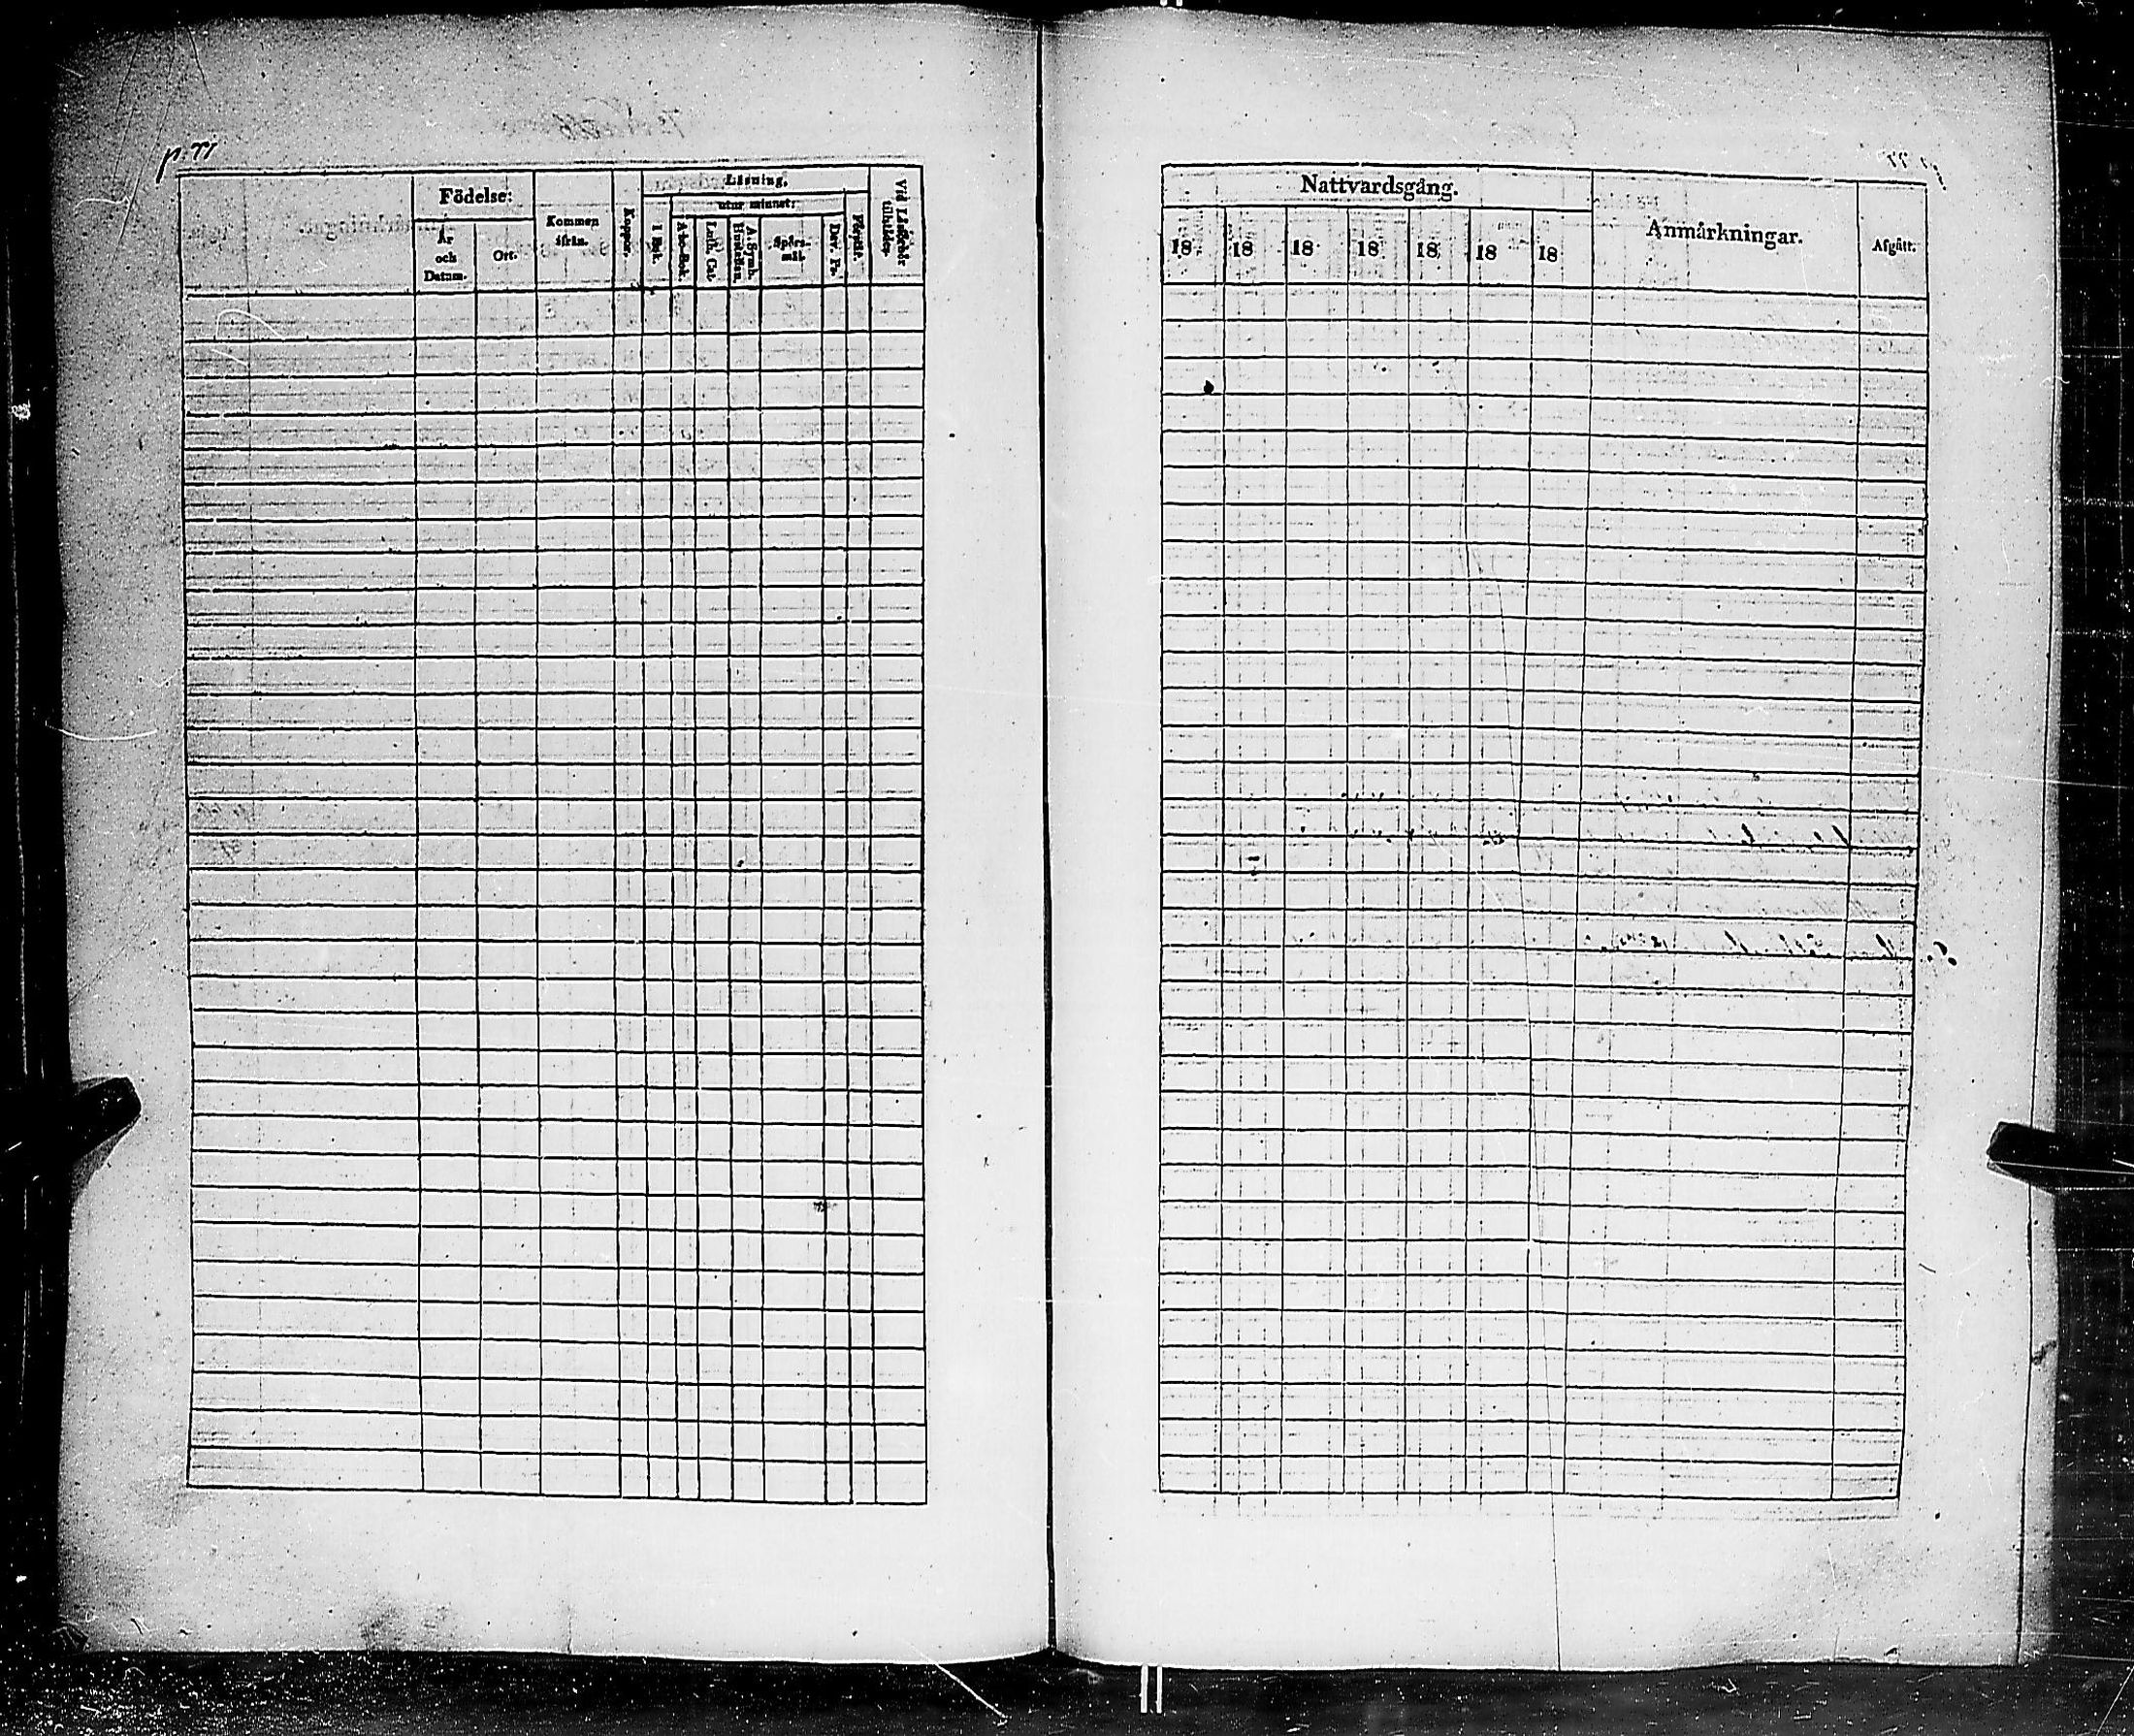 p. 77
Födelse:
År och Datum.
Ort.
Kommen ifrån.
Koppor.
Läsning.
utur minnet:
I Bok.
Abc-Bok.
Luth. Cat.
A. Symb. Hustaflan.
Spörs-mål.
Dav. Ps.
Förstår.
Vid Läsförhör tillstädes.
Nattvardsgång.
18
18
18
18
18
18
18
Anmärkningar.
Afgått.